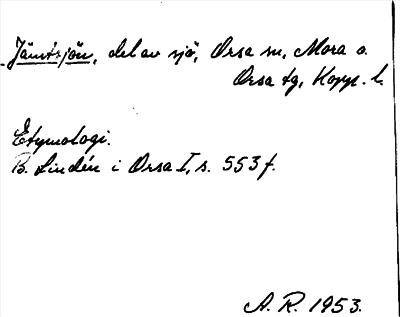 Jämtsjön, del av sjö, Orsa sn, Mora o.
Orsa tg, Kopp. l.
Etymologi.
B. Lindén i Orsa I, s. 553 f.
A. R. 1953.